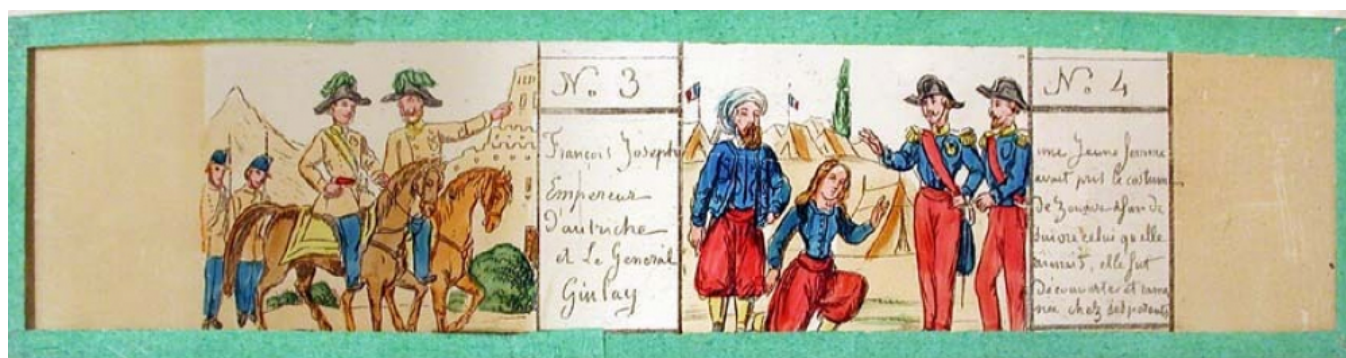 No 3
François Joseph
Empereur
d'autriche
et Le General
Giulay
No 4
une Jeune femme
avait pris le costum
de Zouave afin de
suivre celui qu'elle
aimait, elle fut
Decouverte et rame
née chez ses parents